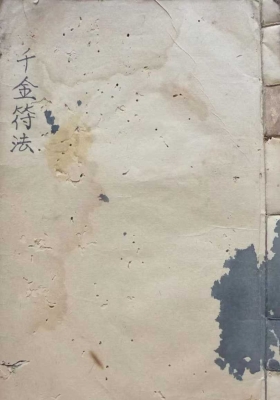 千金符法